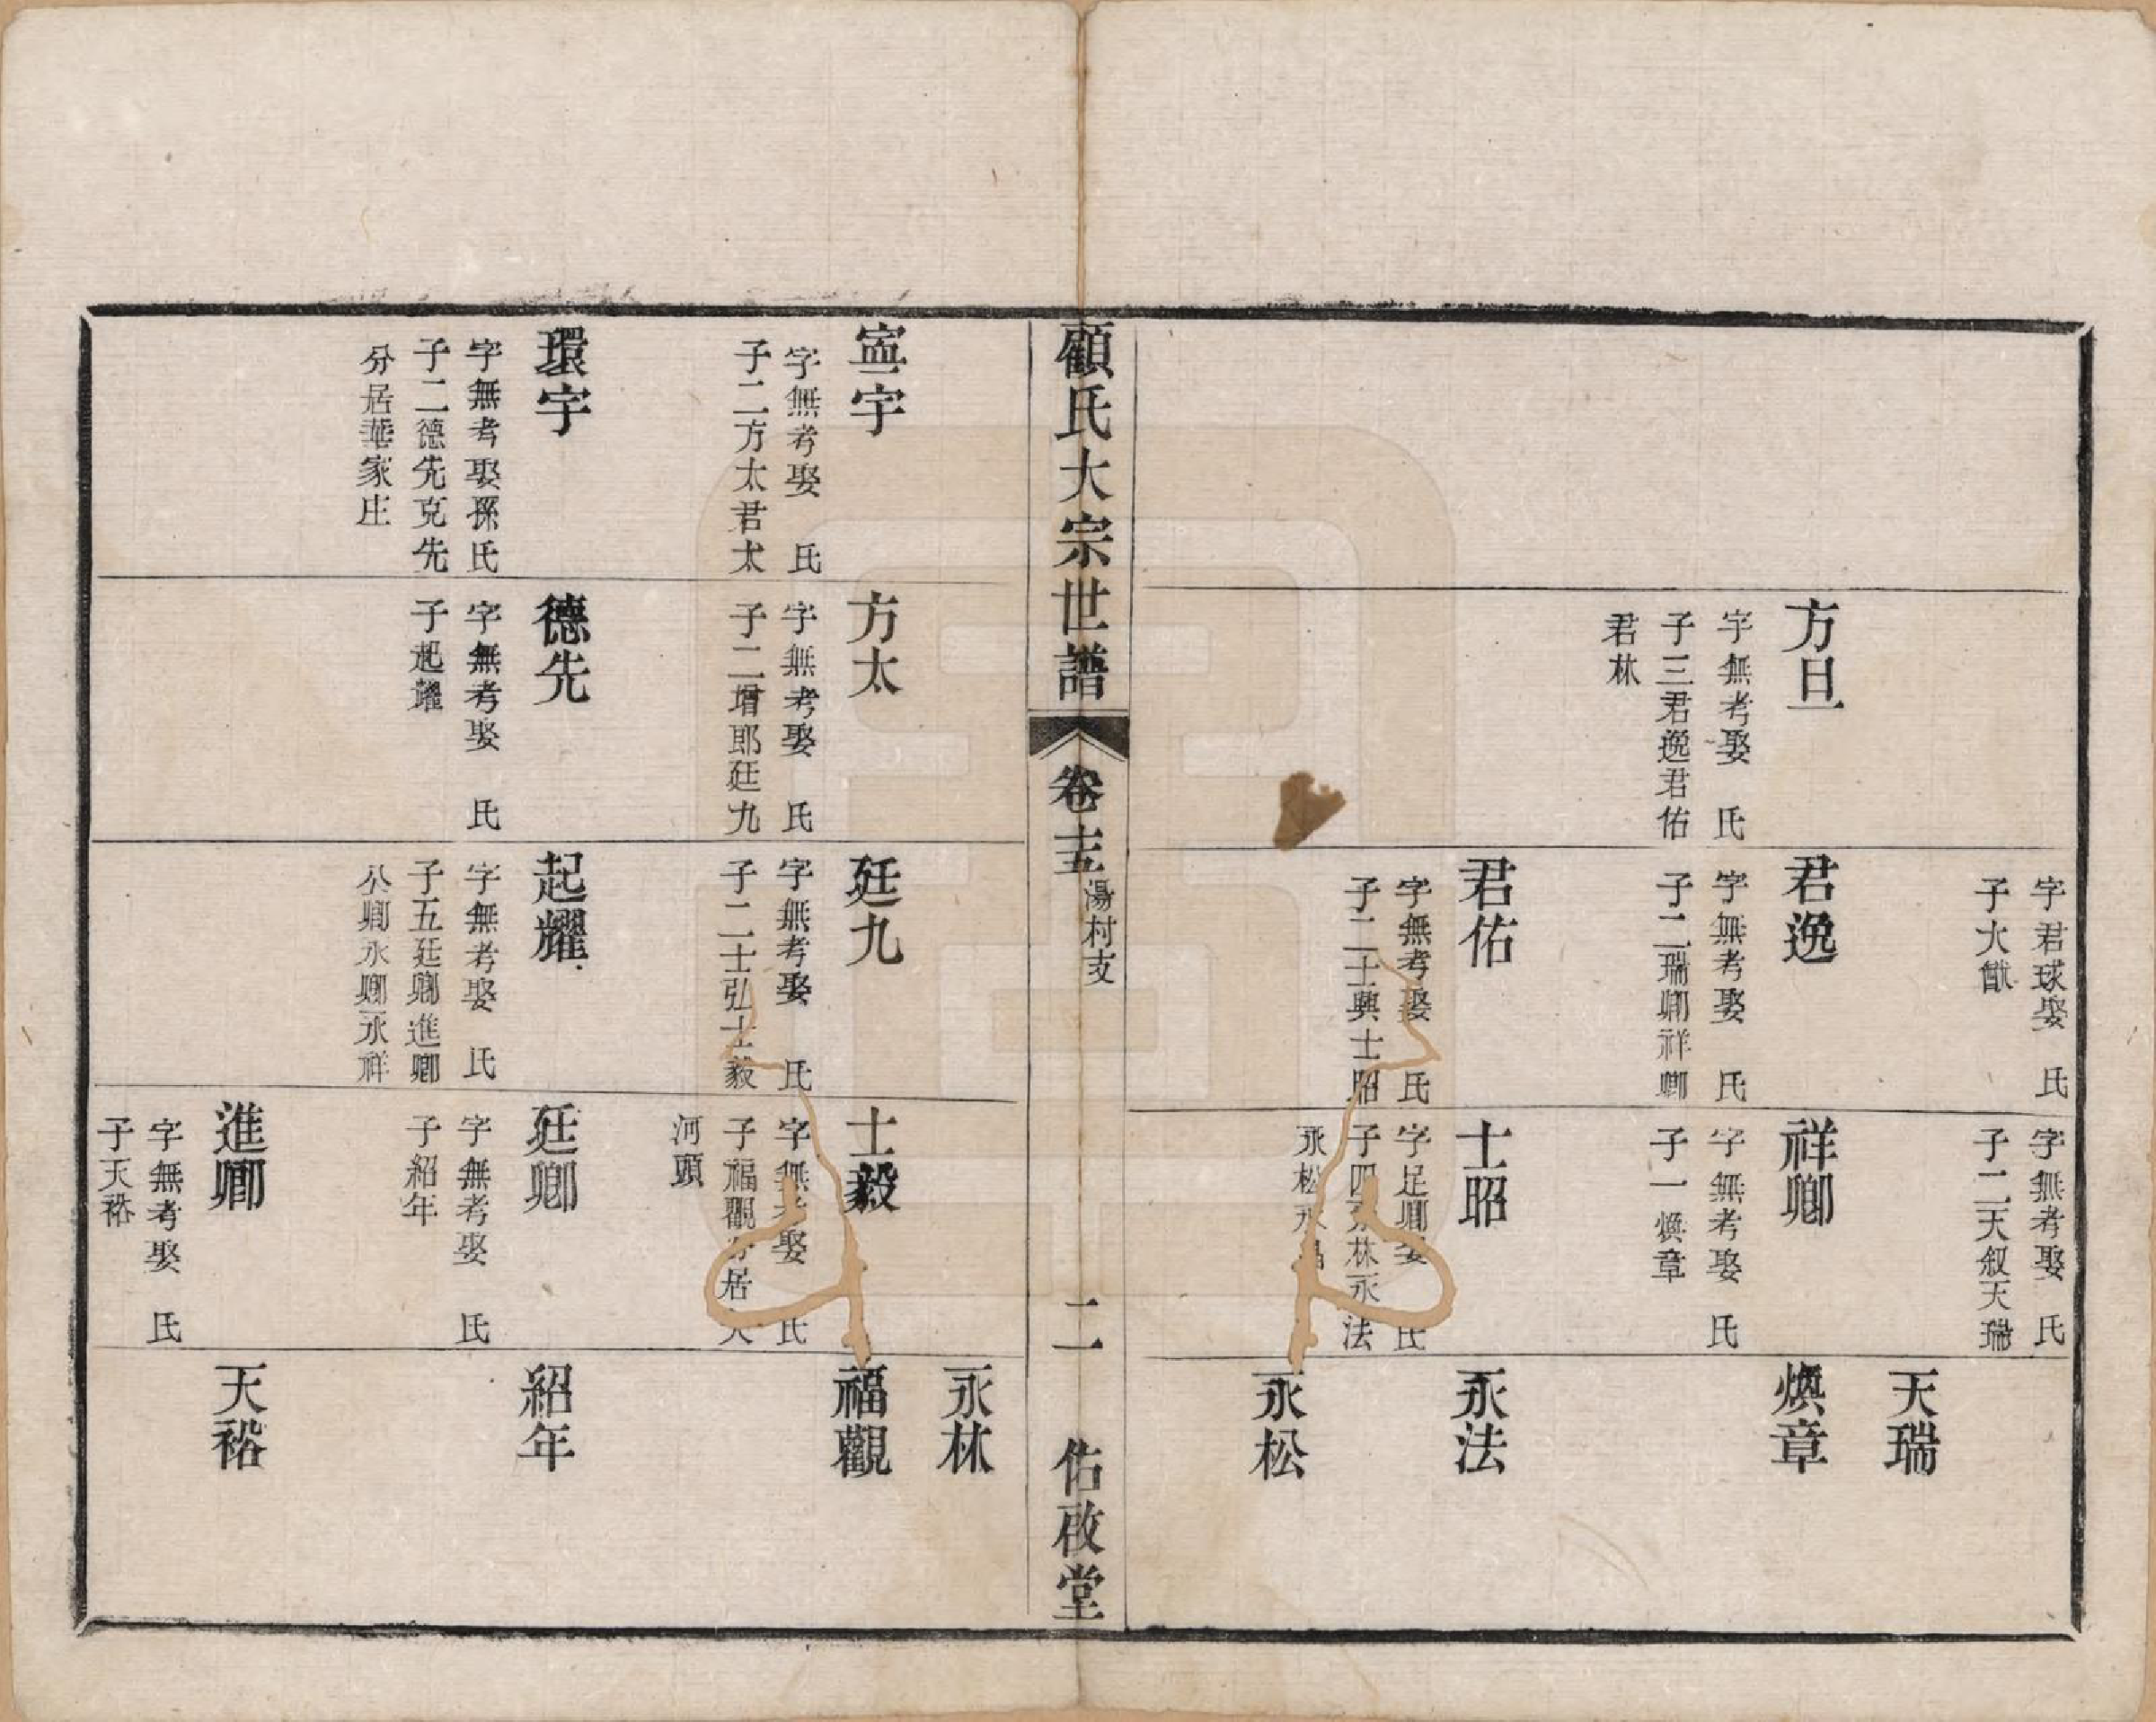 方旦
字無考娶 氏
子三君逸君佑
君林
字君球娶 氏
子大猷
君逸
字無考娶 氏
子二瑞卿祥卿
君佑
字無考娶 氏
子二士興士昭
字無考娶 氏
子二天叙天瑞
祥卿
字無考娶 氏
子一煥章
士昭
字足卿娶 氏
子四永林永法
永松永昌
天瑞
煥章
永法
永松
顧氏大宗世譜
卷十五
湯村支
二
佑啟堂
寍宇
字無考娶 氏
子二方太君太
環宇
字無考娶孫氏
子二德先克先
分居華家庄
方太
字無考娶 氏
子二增郎廷九
德先
字無考娶 氏
子起耀
廷九
字無考娶 氏
子二士弘士毅
起耀
字無考娶 氏
子五廷卿進卿
公卿永卿永祥
士毅
字無考娶 氏
子福觀分居
河頭
廷卿
字無考娶 氏
子紹年
進卿
字無考娶 氏
子天裕
永林
福觀
紹年
天裕